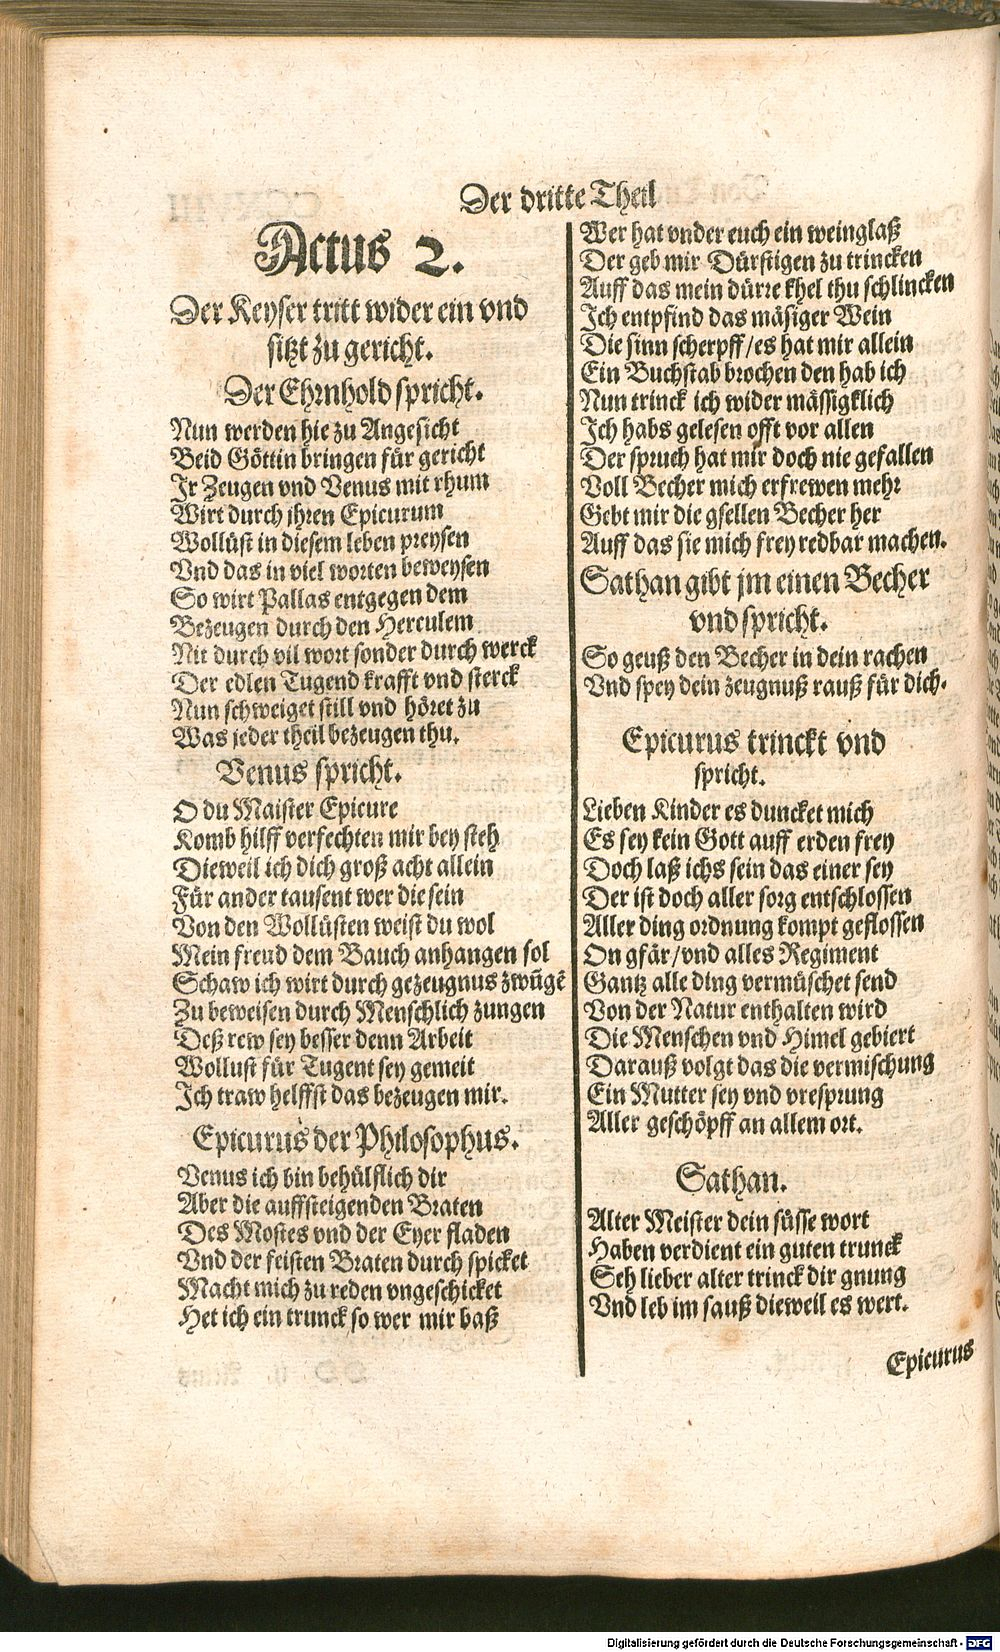 Der dritte Theil
Actus 2.
Der Keyser tritt wider ein vnd
sitzt zu gericht.
Der Ehrnhold spricht.
Nun werden hie zu Angesicht
Beid Göttin bringen für gericht
Ir Zeugen vnd Venus mit rhum
Wirt durch jhren Epicurum
Wollüst in diesem leben preysen
Vnd das in viel worten beweysen
So wirt Pallas entgegen dem
Bezeugen durch den Herculem
Nit durch vil wort sonder durch werck
Der edlen Tugend krafft vnd sterck
Nun schweiget still vnd höret zu
Was jeder theil bezeugen thu.
Venus spricht.
O du Maister Epicure
Komb hilff verfechten mir bey steh
Dieweil ich dich groß acht allein
Für ander tausent wer die sein
Von den Wollüsten weist du wol
Mein freud dem Bauch anhangen sol
Schaw ich wirt durch gezeugnus zwũgẽ
Zu beweisen durch Menschlich zungen
Deß rew sey besser denn Arbeit
Wollust für Tugent sey gemeit
Ich traw helffst das bezeugen mir.
Epicurus der Philosophus.
Venus ich bin behülflich dir
Aber die auffsteigenden Braten
Des Mostes vnd der Eyer fladen
Vnd der feisten Braten durch spicket
Macht mich zu reden vngeschicket
Het ich ein trunck so wer mir baß
Wer hat vnder euch ein weinglaß
Der geb mir Dürstigen zu trincken
Auff das mein dürre khel thu schlincken
Ich entpfind das mäsiger Wein
Die sinn scherpff/es hat mir allein
Ein Buchstab brochen den hab ich
Nun trinck ich wider mässigklich
Ich habs gelesen offt vor allen
Der spruch hat mir doch nie gefallen
Voll Becher mich erfrewen mehr
Gebt mir die gsellen Becher her
Auff das sie mich frey redbar machen.
Sathan gibt jm einen Becher
vnd spricht.
So geuß den Becher in dein rachen
Vnd spey dein zeugnuß rauß für dich.
Epicurus trinckt vnd
spricht.
Lieben Kinder es duncket mich
Es sey kein Gott auff erden frey
Doch laß ichs sein das einer sey
Der ist doch aller sorg entschlossen
Aller ding ordnung kompt geflossen
On gfär/vnd alles Regiment
Gantz alle ding vermüschet send
Von der Natur enthalten wird
Die Menschen vnd Himel gebiert
Darauß volgt das die vermischung
Ein Mutter sey vnd vresprung
Aller geschöpff an allem ort.
Sathan.
Alter Meister dein süsse wort
Haben verdient ein guten trunck
Seh lieber alter trinck dir gnung
Vnd leb im sauß dieweil es wert.
Epicurus
Digitalisierung gefördert durch die Deutsche Forschungsgemeinschaft - DFG